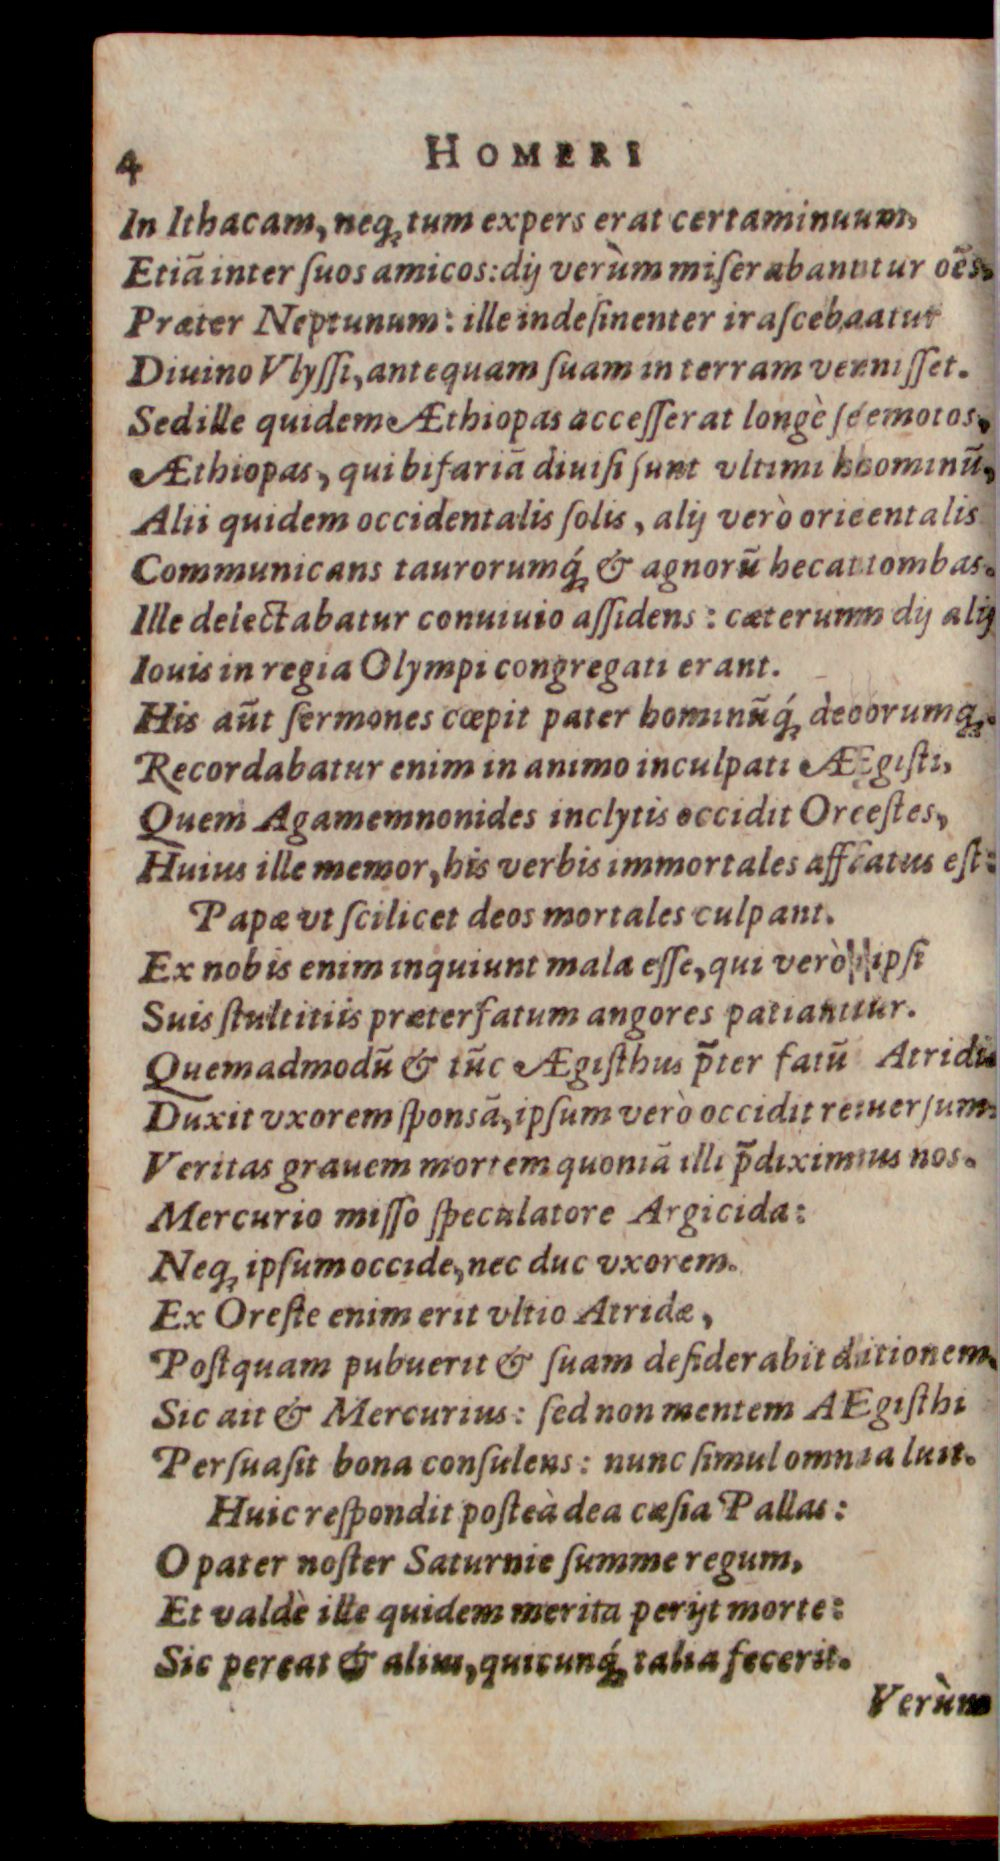 4 HOMERI
In Ithacam, neq; tum expers erat certaminuum,
Etiã inter ſuos amicos: dij verùm miſerabantur oẽs,
Præter Neptunum: ille indeſinenter iraſcebaatur
Diuino Vlyſſi, antequam ſuam in terram venniſſet.
Sed ille quidem Æthiopas acceſſerat longè ſeemotos,
Æthiopas, qui bifariã diuiſi ſunt vltimi hhominũ,
Alii quidem occidentalis ſolis, alij verò orieentalis
Communicans taurorumq́; & agnorũ hecattombas.
Ille delectabatur conuiuio aſſidens: cæterumn dij alij
Iouis in regia Olympi congregati erant.
His aũt ſermones cœpit pater hominũq́; deoorumq;.
Recordabatur enim in animo inculpati ÆEgiſti,
Quem Agamemnonides inclytis occidit Oreeſtes,
Huius ille memor, his verbis immortales affatus eſt:
Papæ vt ſcilicet deos mortales culpant.
Ex nobis enim inquiunt mala eſſe, qui verò ipſi
Suis ſtultitiis præter fatum angores patiantur.
Quemadmodũ & tũc Ægiſthus p̃ter fatũ Atridis
Duxit vxorem ſponsã, ipſum verò occidit reuerſum:
Veritas grauem mortem quoniã illi p̃diximus nos.
Mercurio miſſo ſpeculatore Argicida:
Neq; ipſum occide, nec duc vxorem.
Ex Oreſte enim erit vltio Atridæ,
Poſtquam pubuerit & ſuam deſiderabit ditionem,
Sic ait & Mercurius: ſed non mentem AEgiſthi
Perſuaſit bona conſulens: nunc ſimul omnia luit.
Huic reſpondit poſteà dea cæſia Pallas:
O pater noſter Saturnie ſumme regum,
Et valdè ille quidem merita perijt morte:
Sic pereat & alius, quicunq́; talia fecerit.
Verùm